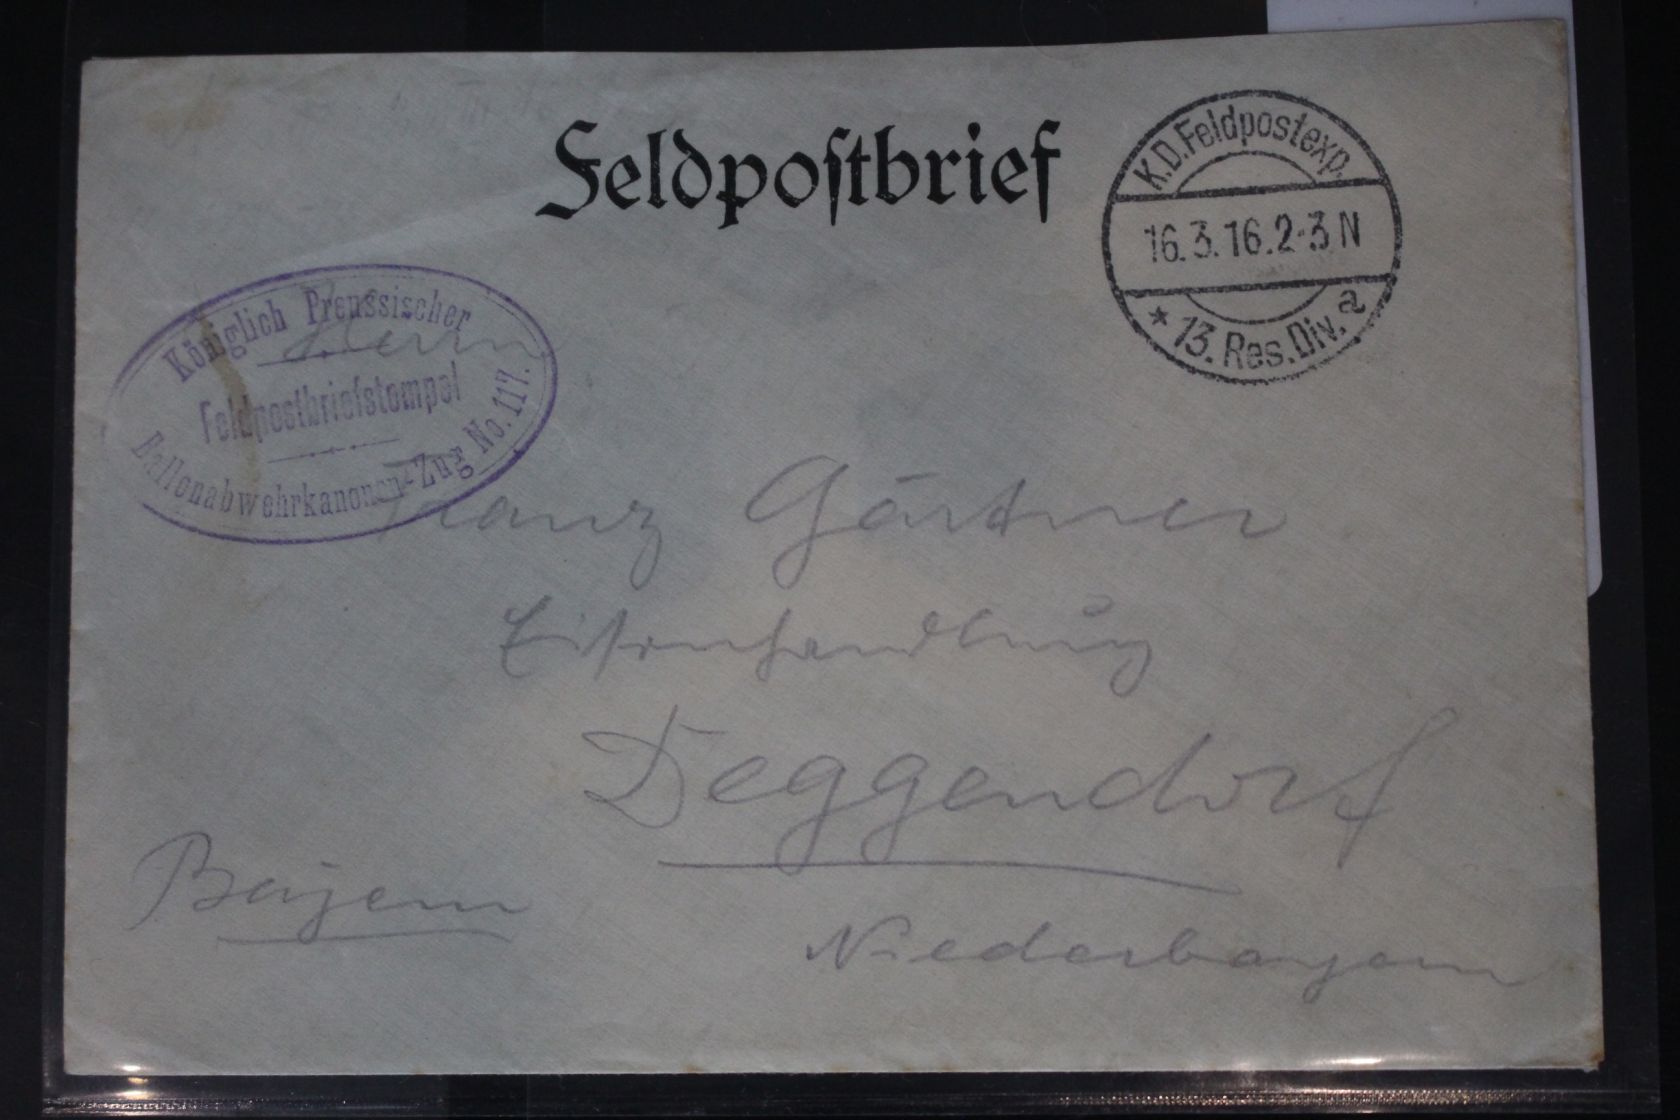 Feldpostbrief
K.D.Feldpostexp.
16.3.16.2-3N
* 13.Res.Div. a
Königlich Preussischer
Feldpostbriefstempel
Ballonabwehrkanonen-Zug No.117.
Herrn
Franz Gärtner
Eisenhandlung
Deggendorf
Bayern
Niederbayern